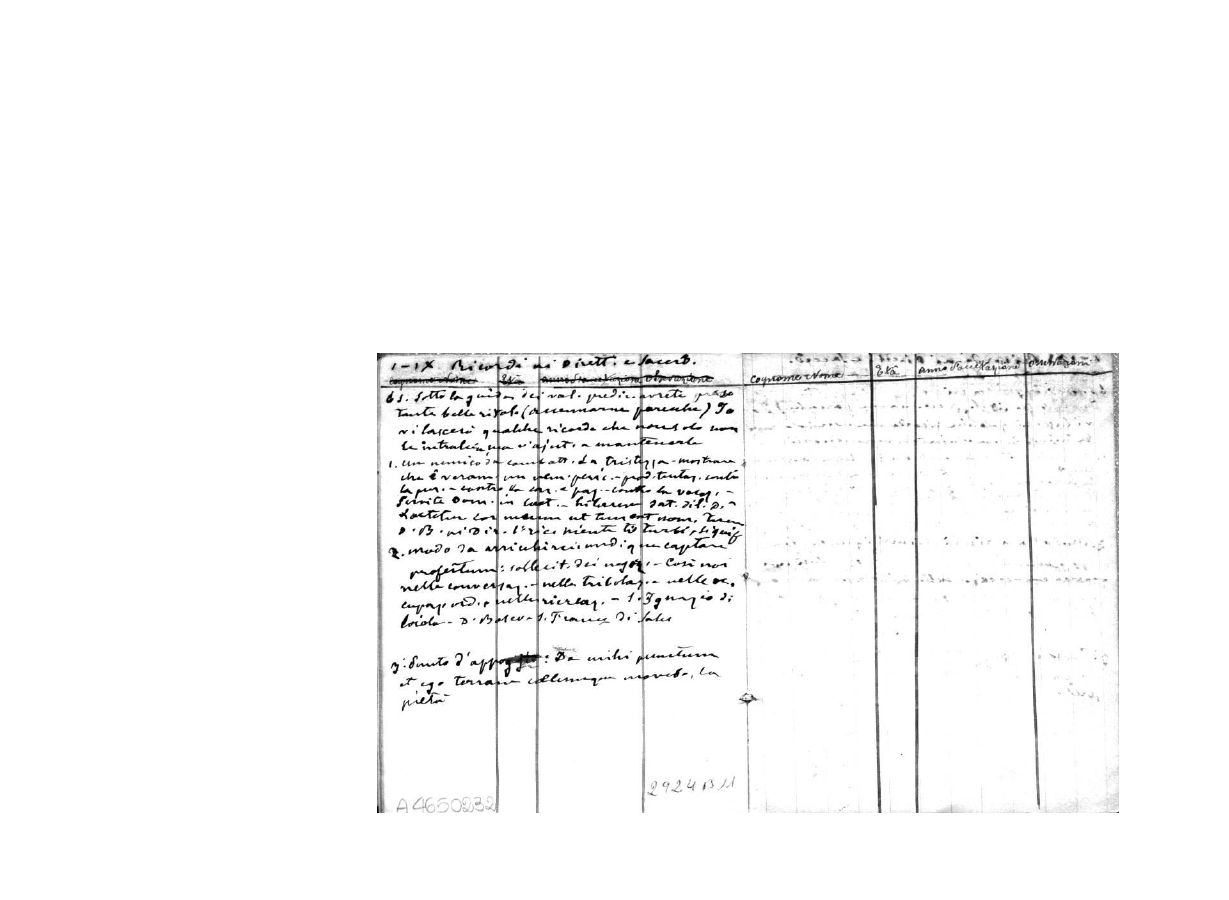 1-IX Ricordi ai Dirett. e Sacerd.
Cognome e Nome Età Anno d'accettazione Osservazione
Sotto la guida dei val. predic. avrete prese
tante belle risol. (accennarne parecchie) Io
vi lascerò qualche ricordo che non solo non
le intralcia, ma v'ajuti a mantenerle
1. Un nemico da combatt. La tristezza - mostrare
che è veram. un peric. - prod. tentaz. contro
la pur. - contro la car. e paz. - contro la vocaz. -
Servite Dom. in laet. - hilarem dat. dil. D. -
Laetetur cor meum ut timeat nomen tuum
D. B. ai Dir. niente ti turbi,
2. modo da arricchirci ogni di
profectum: sollecit. dei negoz. - Così noi
nelle conversaz. - nelle tribolaz. - nelle oc-
cupaz. ord. e nelle ricreaz. - S. Ignazio di
Loiola - D. Bosco - S. Franc. di Sales
3. Punto d'appoggio: Da mihi punctum
et ego terram coelumque movebo, la
pietà
2924 B 11
A4650232
Cognome e Nome Età Anno d'accettazione Osservazioni